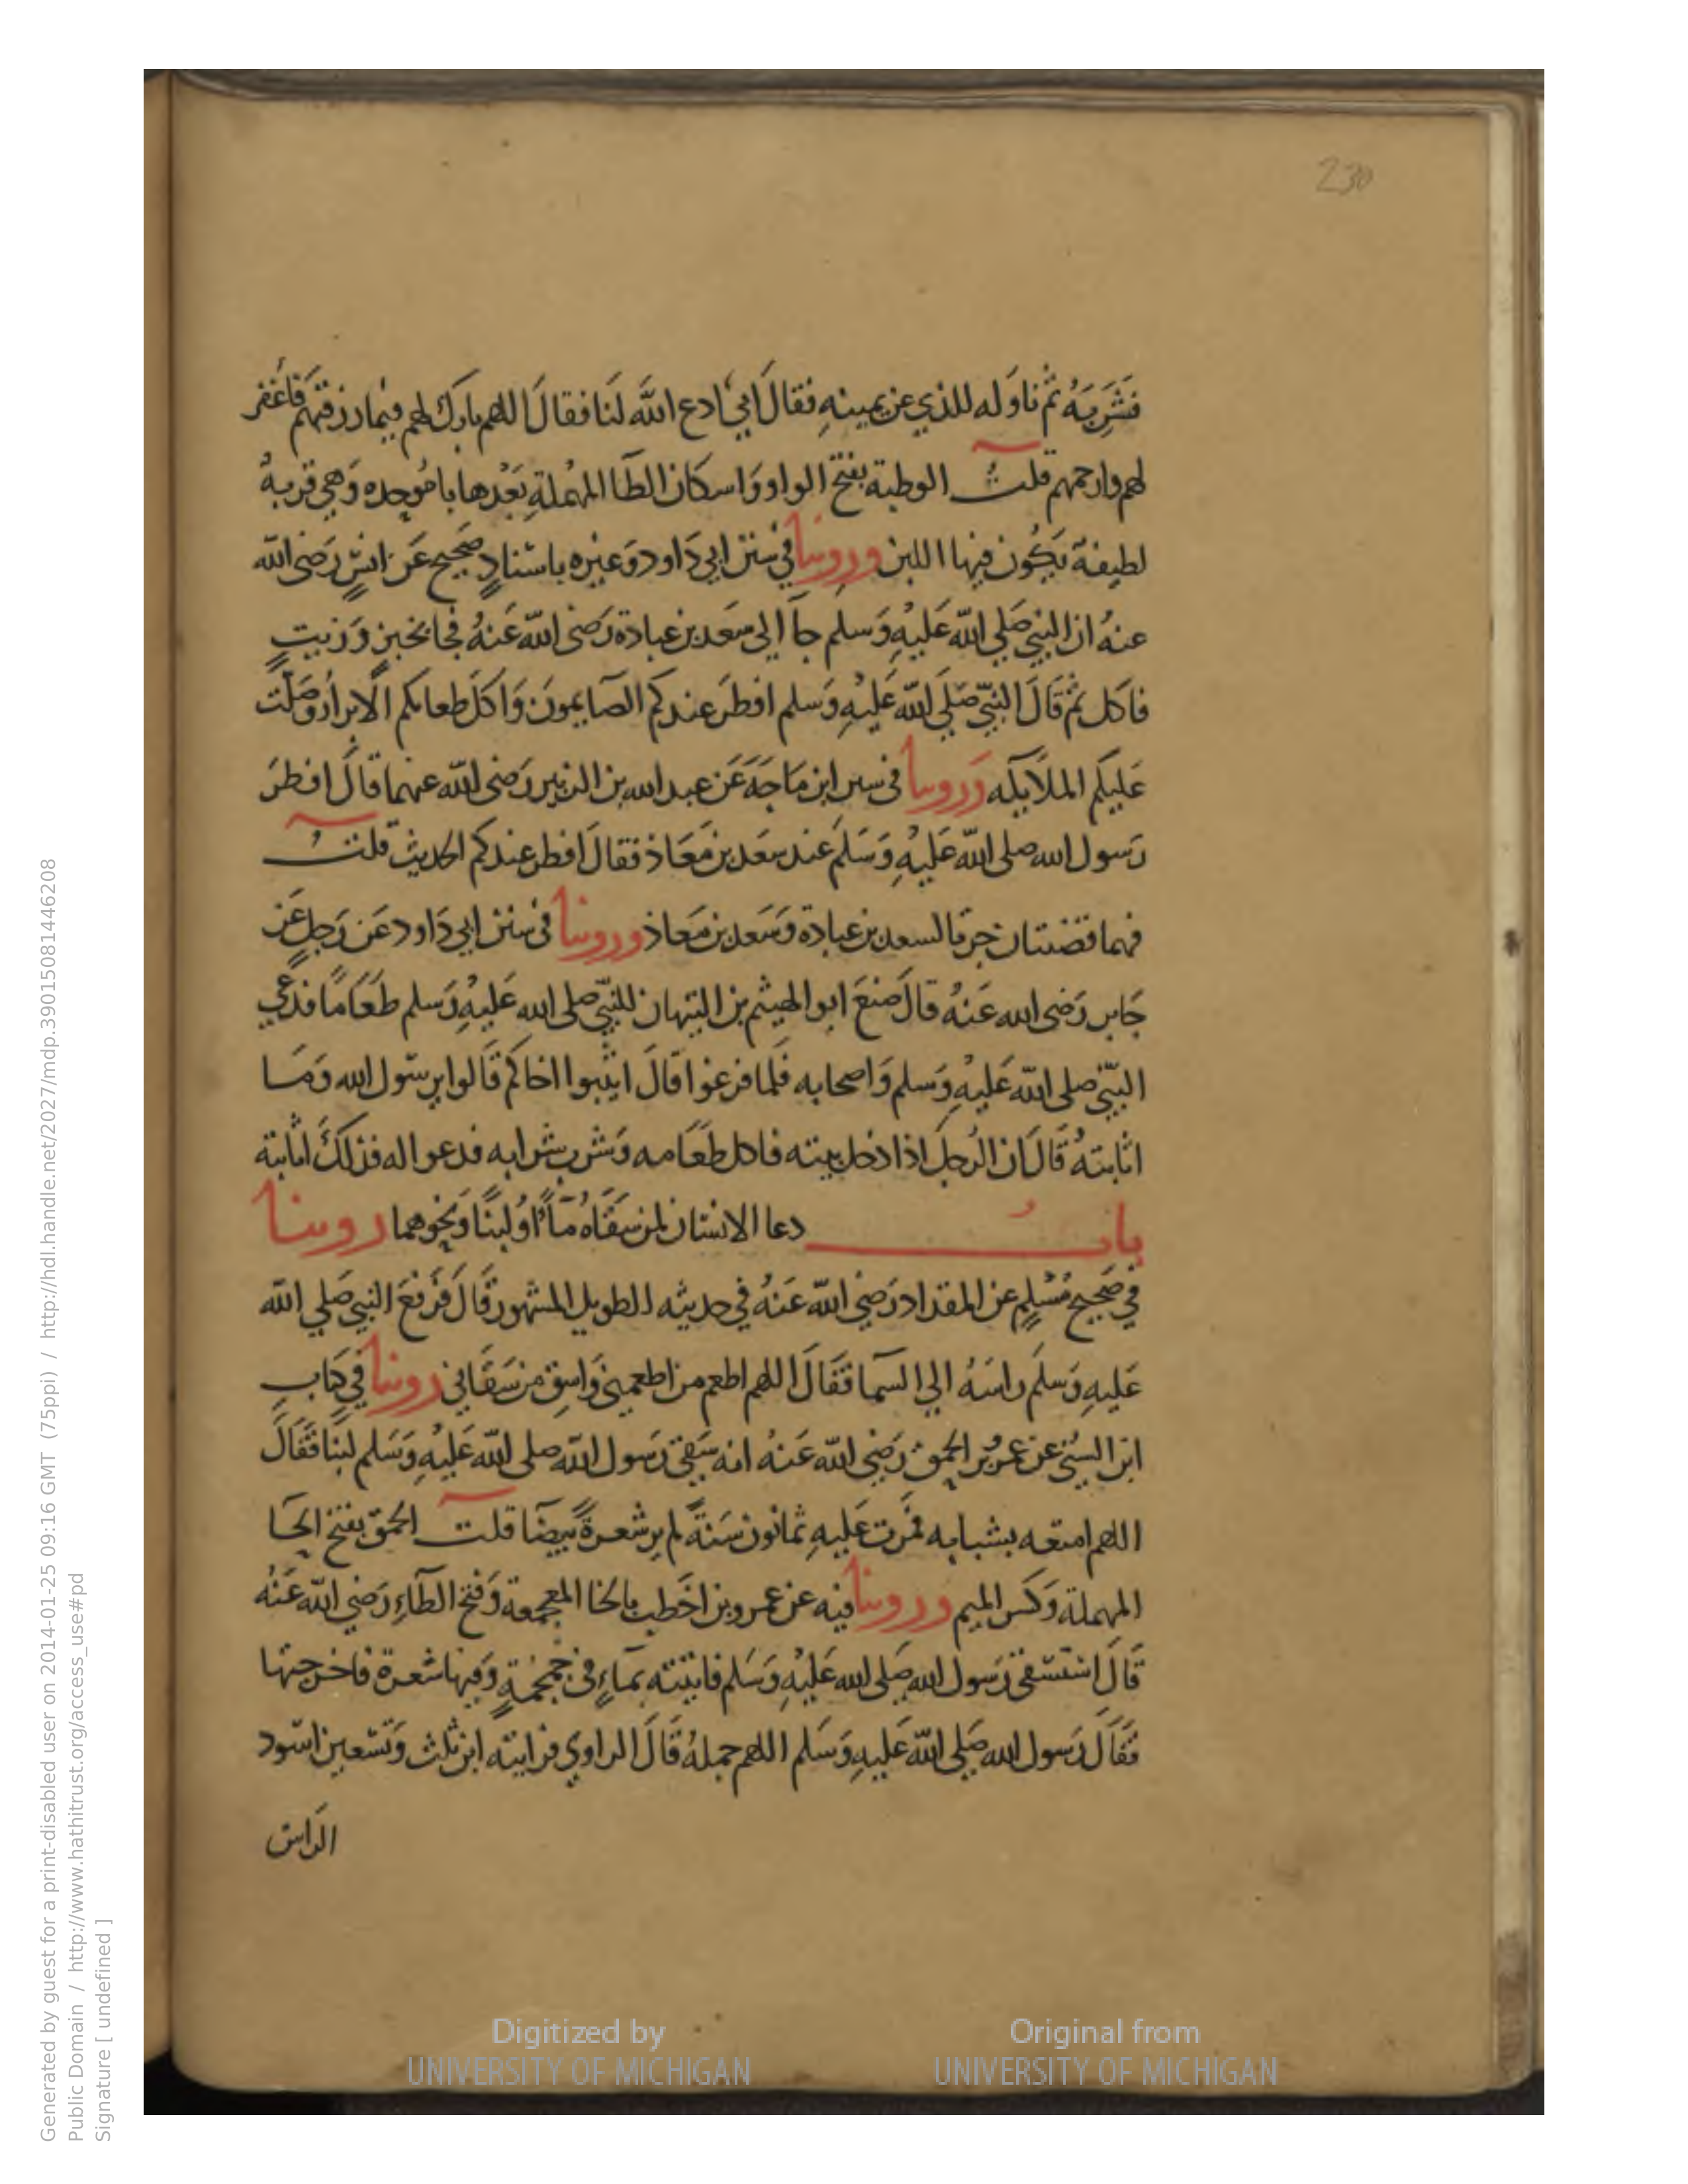 230
فَشَرِبَهُ ثم ناوَله للذي عن يمينهِ فقالَ ابيَ ادع اللهَ لنَا فقالَ اللهم بارك لهم فيما رزقتهم فَاغفر
لهم وارحمهم قلتُ الوطبة بفتح الواو وَاسكان الطَّا المهُملةِ بَعْدها با مُوحده وَهي قربةُ
لطيفة يَكُون فيها اللبن ورويناَ في سنن ابي دَاود وَغيره باسنادٍ صَحيح عَن انسٍ رَضى الله
عنهُ ان النبي صَلي الله عَليهِ وَسلم جآ الي سَعَد بن عبادة رَضى الله عَنهُ فجا بخبزٍ وَزيتٍ
فاكل ثم قَالَ النبيّ صَلَي الله عَليهِ وَسلم افطرَ عندكم الصَايمونَ وَاكلَ طعامكم الابرارُ وصَلّت
عَليكم الملايكه وَروينا فى سنن ابن مَاجَهَ عَن عبد الله بن الزبير رَضى الله عنهما قالَ افطرَ
رَسول الله صلى الله عَليهِ وَسَلم عند سَعَد بن مَعَاذ فقالَ افطر عندكم الحديث قلتُ
فهما قضيتان جرتا لسعد بن عبادة وَسَعد بن مَعَاذ وروينا في سنن ابي دَاود عَن رَجلٍ عَن
جَابر رَضى الله عَنهُ قالَ صَنعَ ابو الهيثم بن التيهان للنبيّ صلى الله عَليهِ وَسلم طَعَامًا فدعي
النبيّ صلى الله عَليهِ وَسلم وَاصحابه فَلما فرغوا قالَ اثيبوا اخاكم قَالوا يرسَول الله وَمَا
اثابتهُ قَالَ ان الرَجلَ اذا دخل بيته فاكل طَعَامه وَشرب شرابه فدعوا له فذلكَ اثابته
بابُ دعا الانسان لمن سَقَاهُ مَآءً اوُ لبنًا وَنحوهما روينا
في صَحيح مُسْلمٍ عن المقداد رَضي الله عَنهُ في حديثه الطويل المشهور قَالَ فَرَفعَ النبي صَلي الله
عَليهِ وَسلَم راسَهُ الي السمآ فَقَالَ اللهم اطعم من اطعمني وَاسقِ من سَقَاني روينا في كتابِ
ابن السُني عن عمرو بن الحمق رَضِي الله عَنهُ انه سَقي رَسول الله صلى الله عَليهِ وَسَلم لبَنًا فَقَالَ
اللهم امتعه بشبابه فمرت عَليهِ ثمانون سَنةً لم ير شعرةً بَيضآ قلتُ الحمق بفتح الحَا
المهملة وَكسر الميم وروينا فيه عن عمرو بن اخَطب بالخا المعجمة وَفتح الطاءِ رَضي الله عَنهُ
قَالَ استسقى رَسول الله صَلى الله عَليهِ وَسَلم فاتيته بمآءٍ في جمجُمةٍ وَفيها شعرة فاخرجتها
فَقَالَ رَسول الله صَلي الله عَليهِ وَسَلم اللهم جملهُ قَالَ الراوي فرايته ابن ثلث وَتسعين اسود
الراس
Digitized by
UNIVERSITY OF MICHIGAN
Original from
UNIVERSITY OF MICHIGAN
Generated by guest for a print-disabled user on 2014-01-25 09:16 GMT (75ppi) / http://hdl.handle.net/2027/mdp.39015081446208
Public Domain / http://www.hathitrust.org/access_use#pd
Signature [ undefined ]